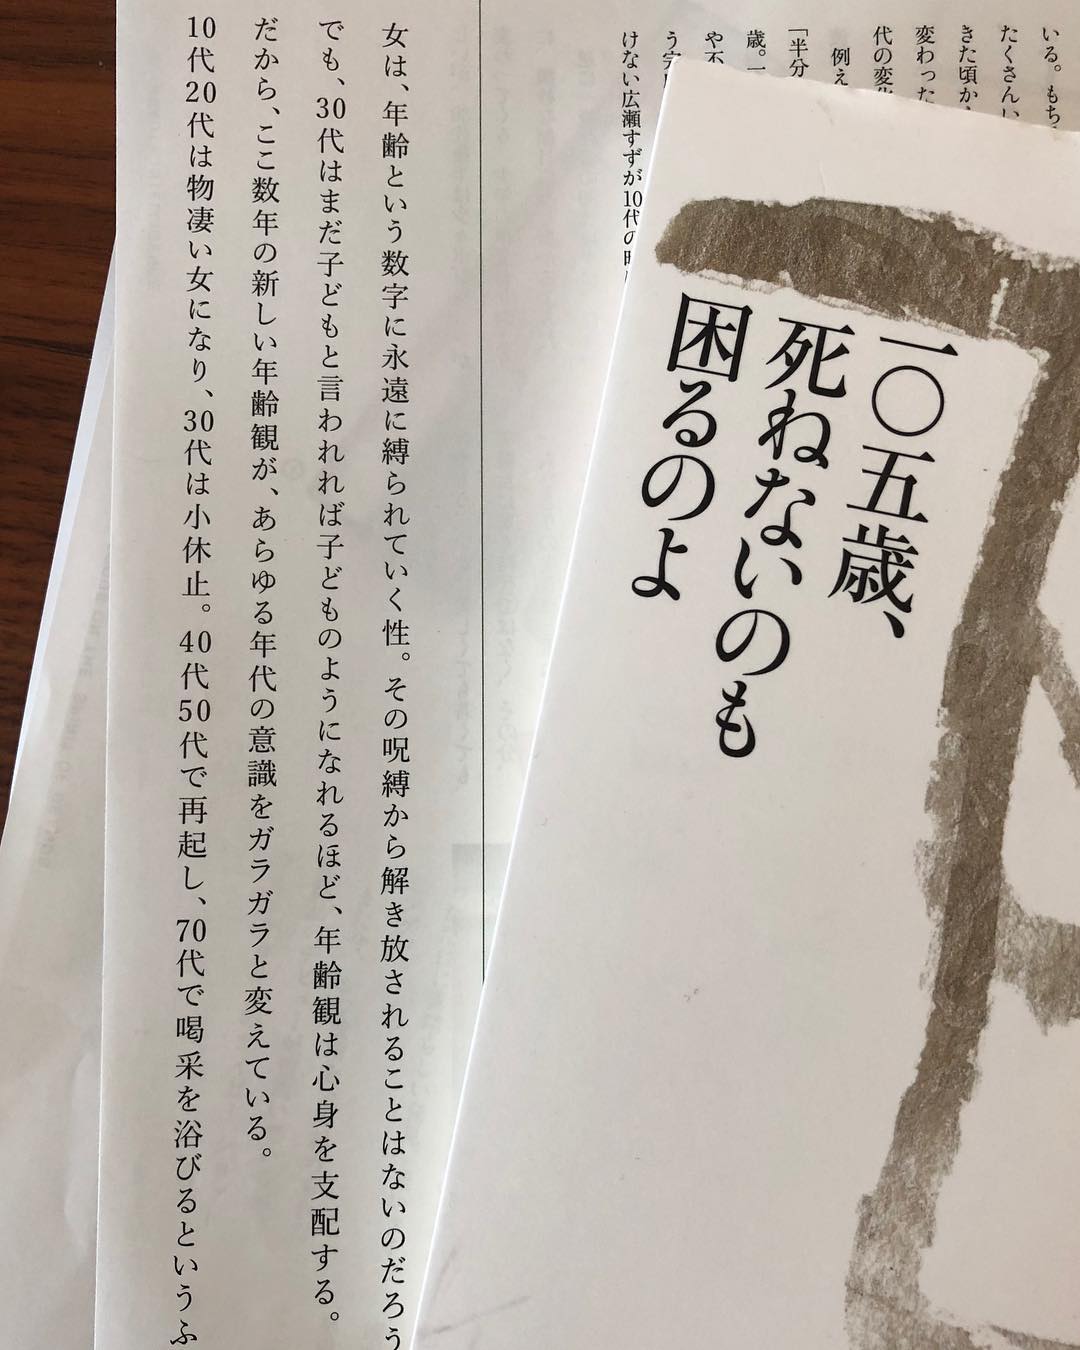 一〇五歳、
死ねないのも
困るのよ
いる。もち
たくさんい
きた頃か
変わった
代の変化
例え
「半分
歳。一
や不
う字
けない広瀬すずが10代の時に
女は、年齢という数字に永遠に縛られていく性。その呪縛から解き放されることはないのだろう
でも、30代はまだ子どもと言われれば子どものようになれるほど、年齢観は心身を支配する。
だから、ここ数年の新しい年齢観が、あらゆる年代の意識をガラガラと変えている。
10代20代は物凄い女になり、30代は小休止。40代50代で再起し、70代で喝采を浴びるというふ